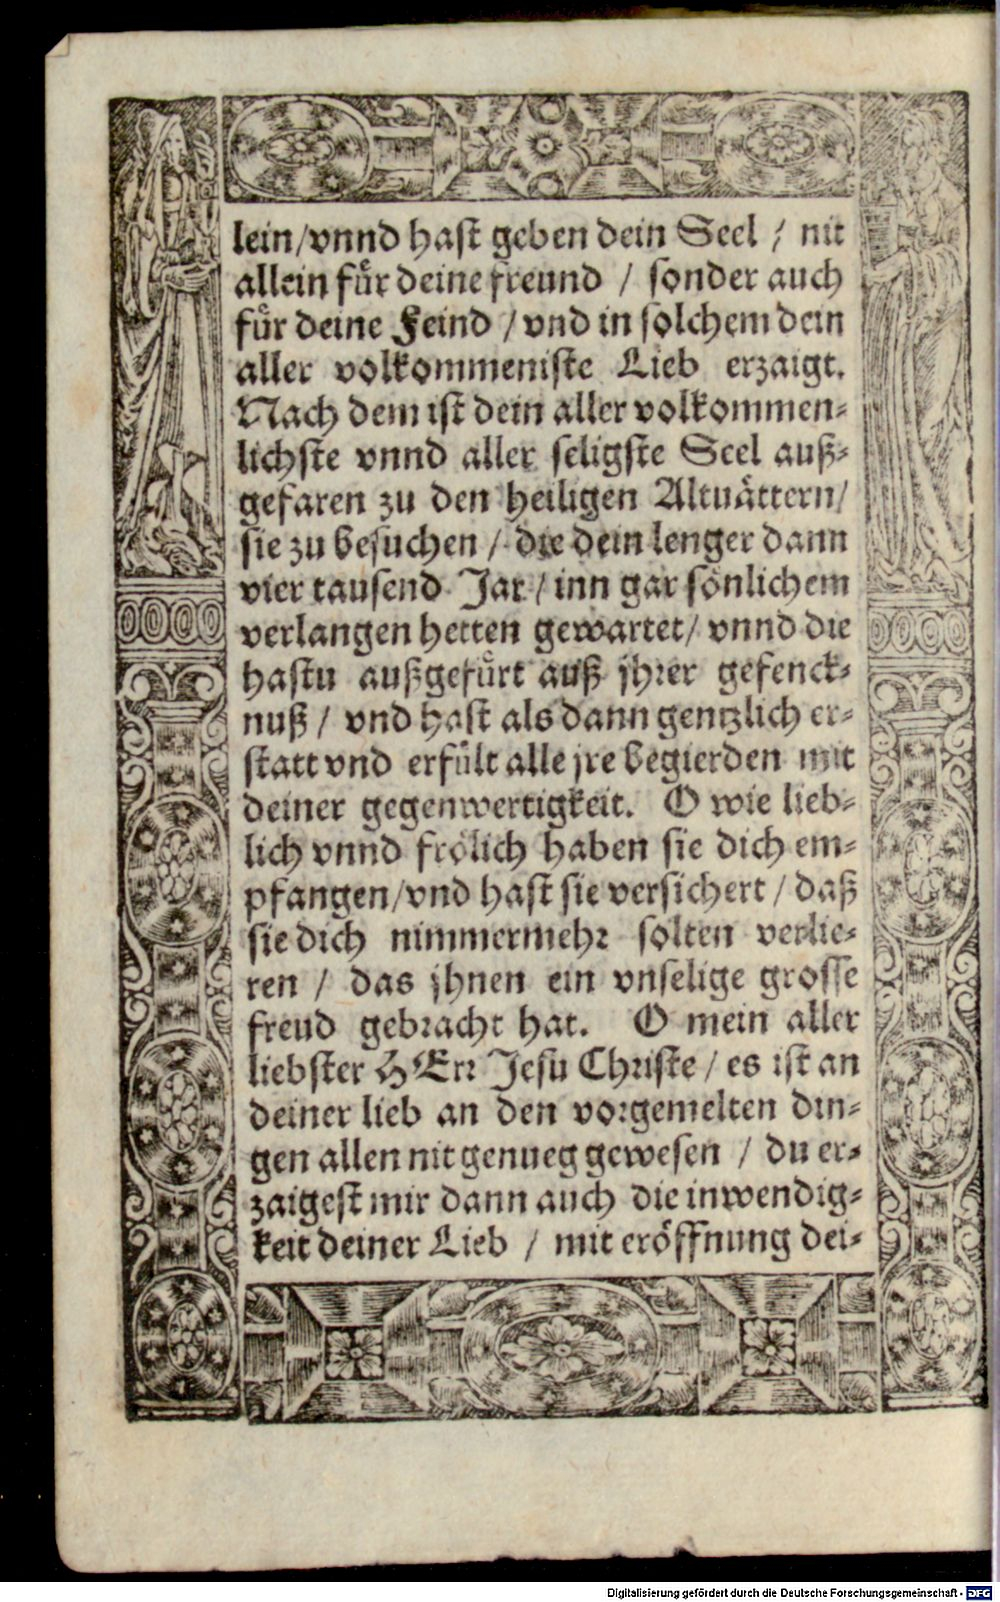 lein/vnnd hast geben dein Seel / nit
allein für deine freund / sonder auch
für deine Feind / vnd in solchem dein
aller volkommeniste Lieb erzaigt.
Nach dem ist dein aller volkommen-
lichste vnnd aller seligste Seel auß-
gefaren zu den heiligen Altuättern/
sie zu besuchen / die dein lenger dann
vier tausend Jar / inn gar sönlichem
verlangen hetten gewartet/ vnnd die
hastu außgefürt auß jhrer gefenck-
nuß / vnd hast als dann gentzlich er-
statt vnd erfült alle jre begierden mit
deiner gegenwertigkeit. O wie lieb-
lich vnnd frölich haben sie dich em-
pfangen/vnd hast sie versichert / daß
sie dich nimmermehr solten verlie-
ren / das jhnen ein vnselige grosse
freud gebracht hat. O mein aller
liebster HErr Jesu Christe / es ist an
deiner lieb an den vorgemelten din-
gen allen nit genueg gewesen / du er-
zaigest mir dann auch die inwendig-
keit deiner Lieb / mit eröffnung dei-
Digitalisierung gefördert durch die Deutsche Forschungsgemeinschaft - DFG